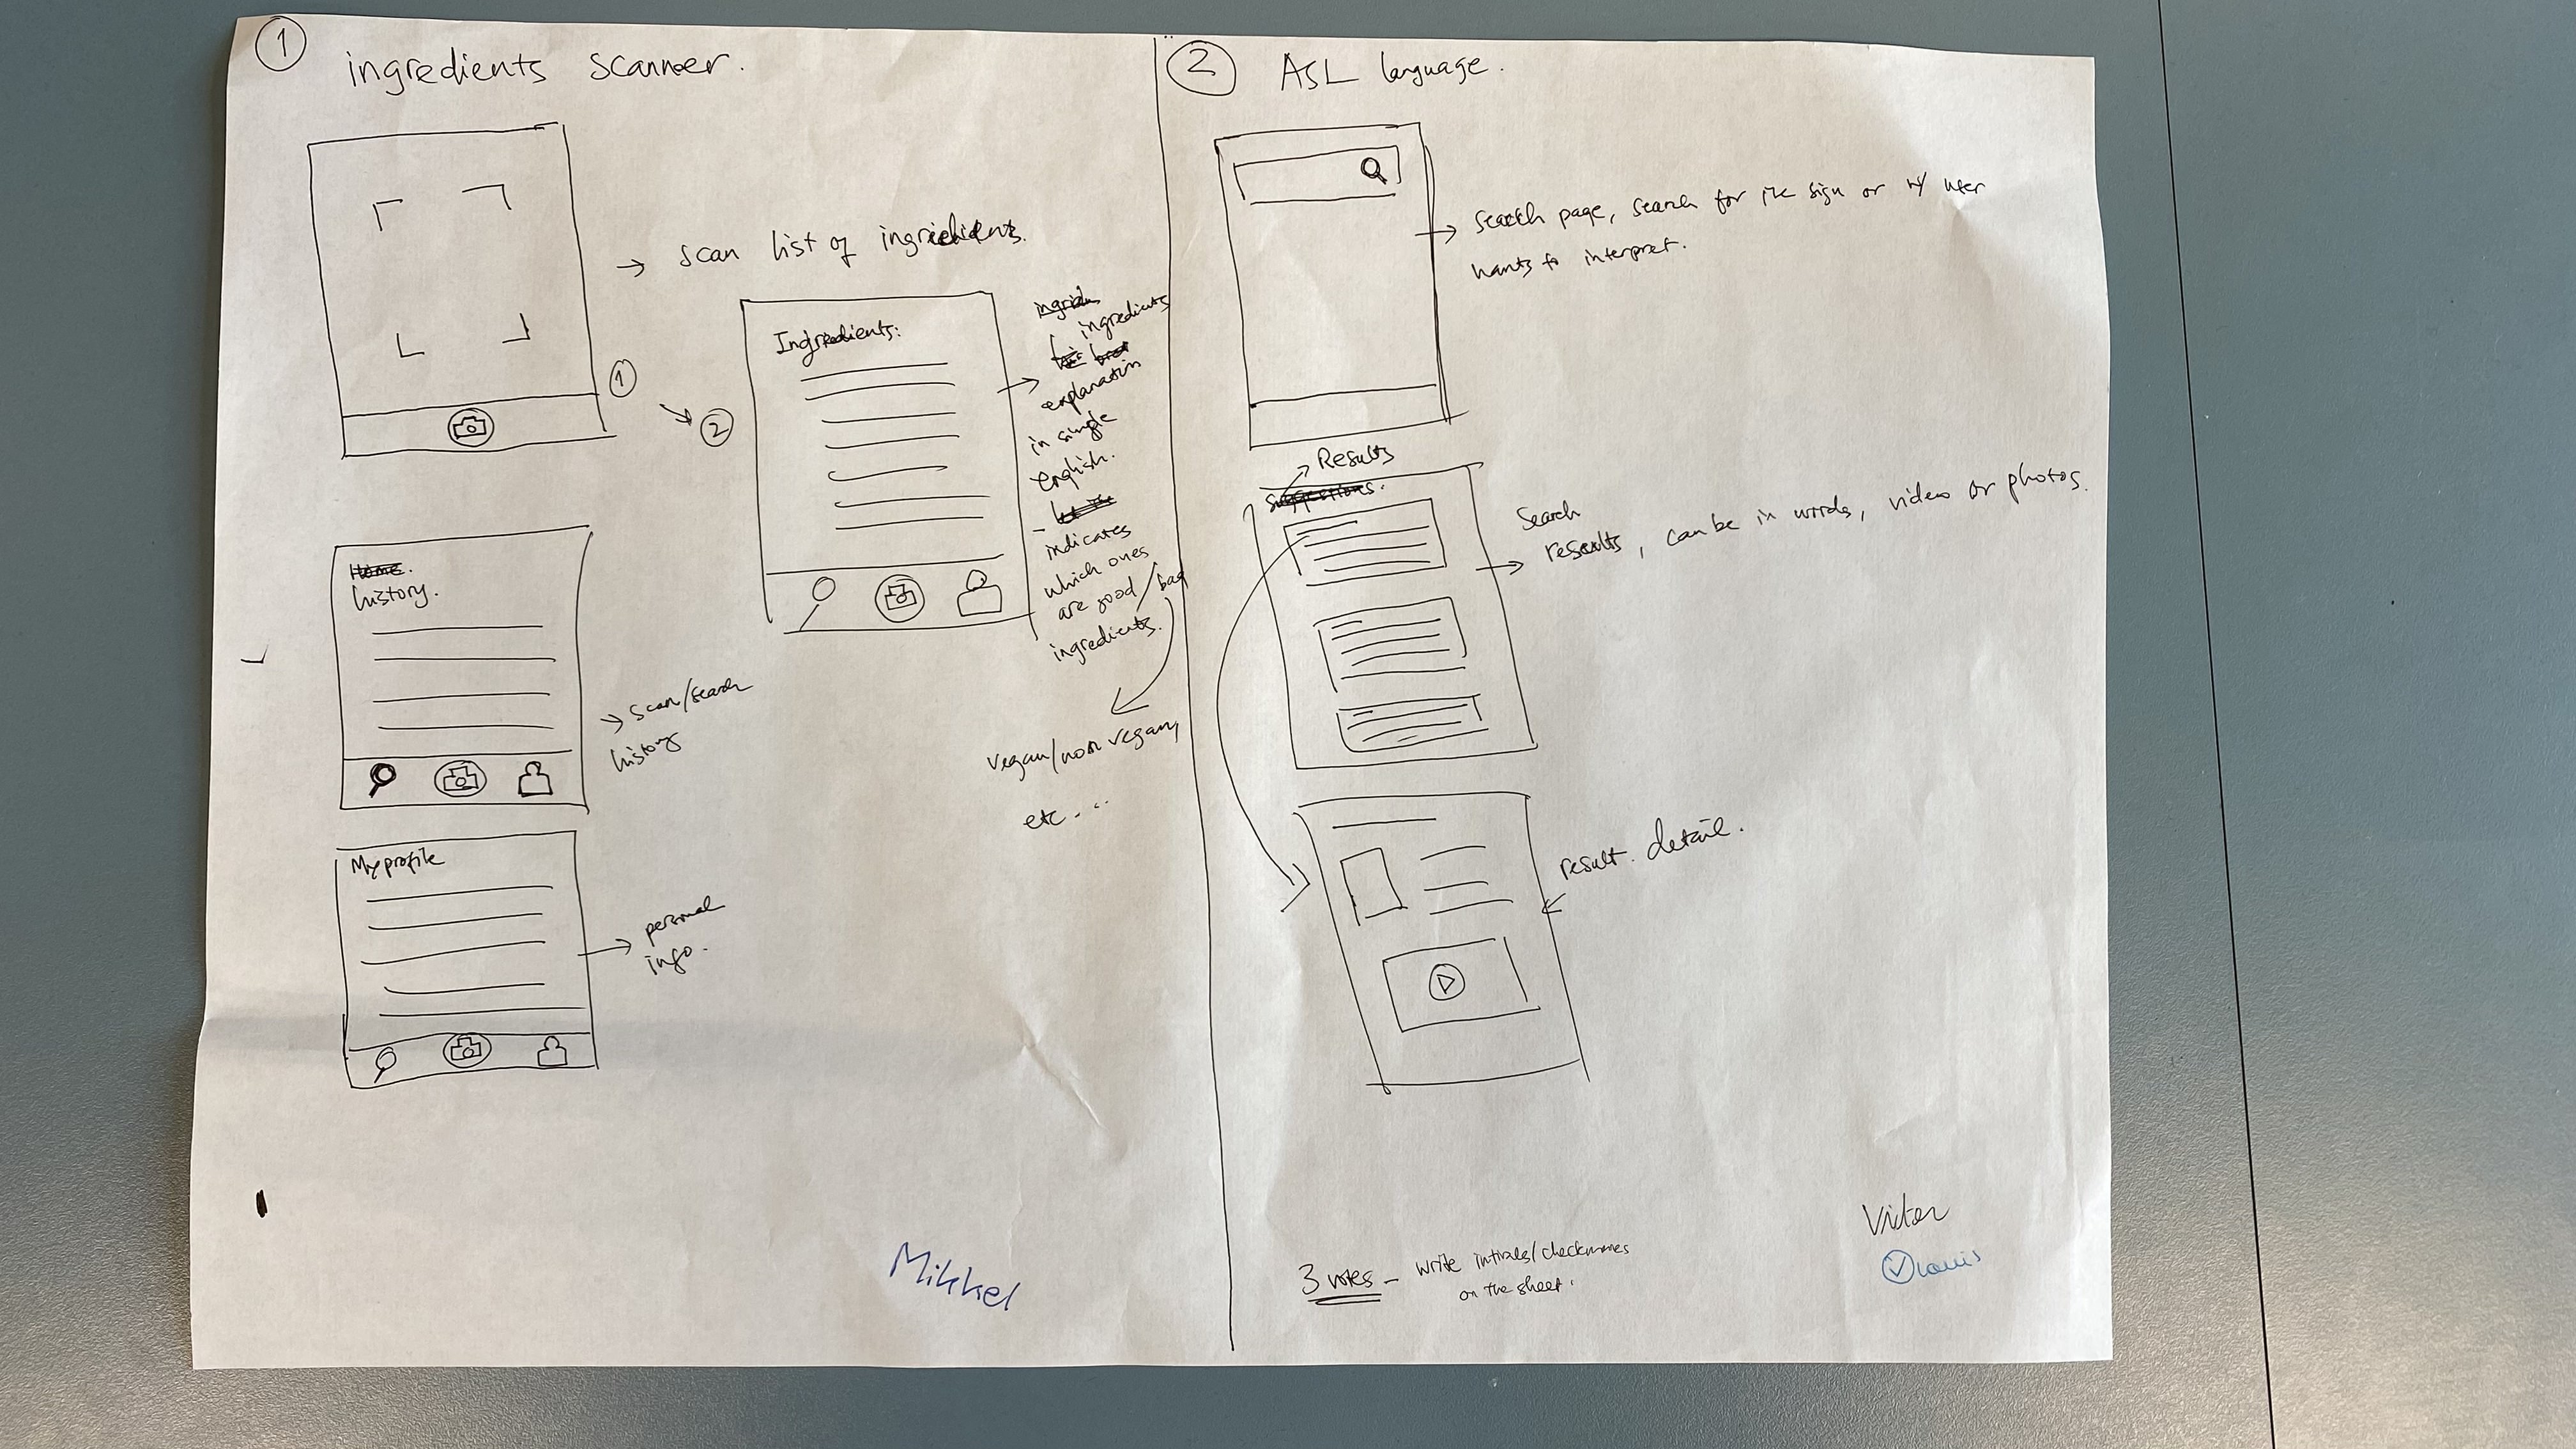 1 ingredients scanner.
→ scan list of ingredients.
1
→ 2
Ingredients:
→ ingredients
explanation
in simple
english.
- indicates
which ones
are good/bad
ingredients.
vegan/non vegan,
etc. ...
history.
→ scan/search
history
My profile
→ personal
info.
Mikkel
2 ASL language.
→ Search page, search for the sign or w/ user
wants to interpret.
→ Results
suggestions.
Search
→ results, can be in words, video or photos.
result. detail.
3 votes – write intirals/checkmarks
on the sheet.
Victor
Louis